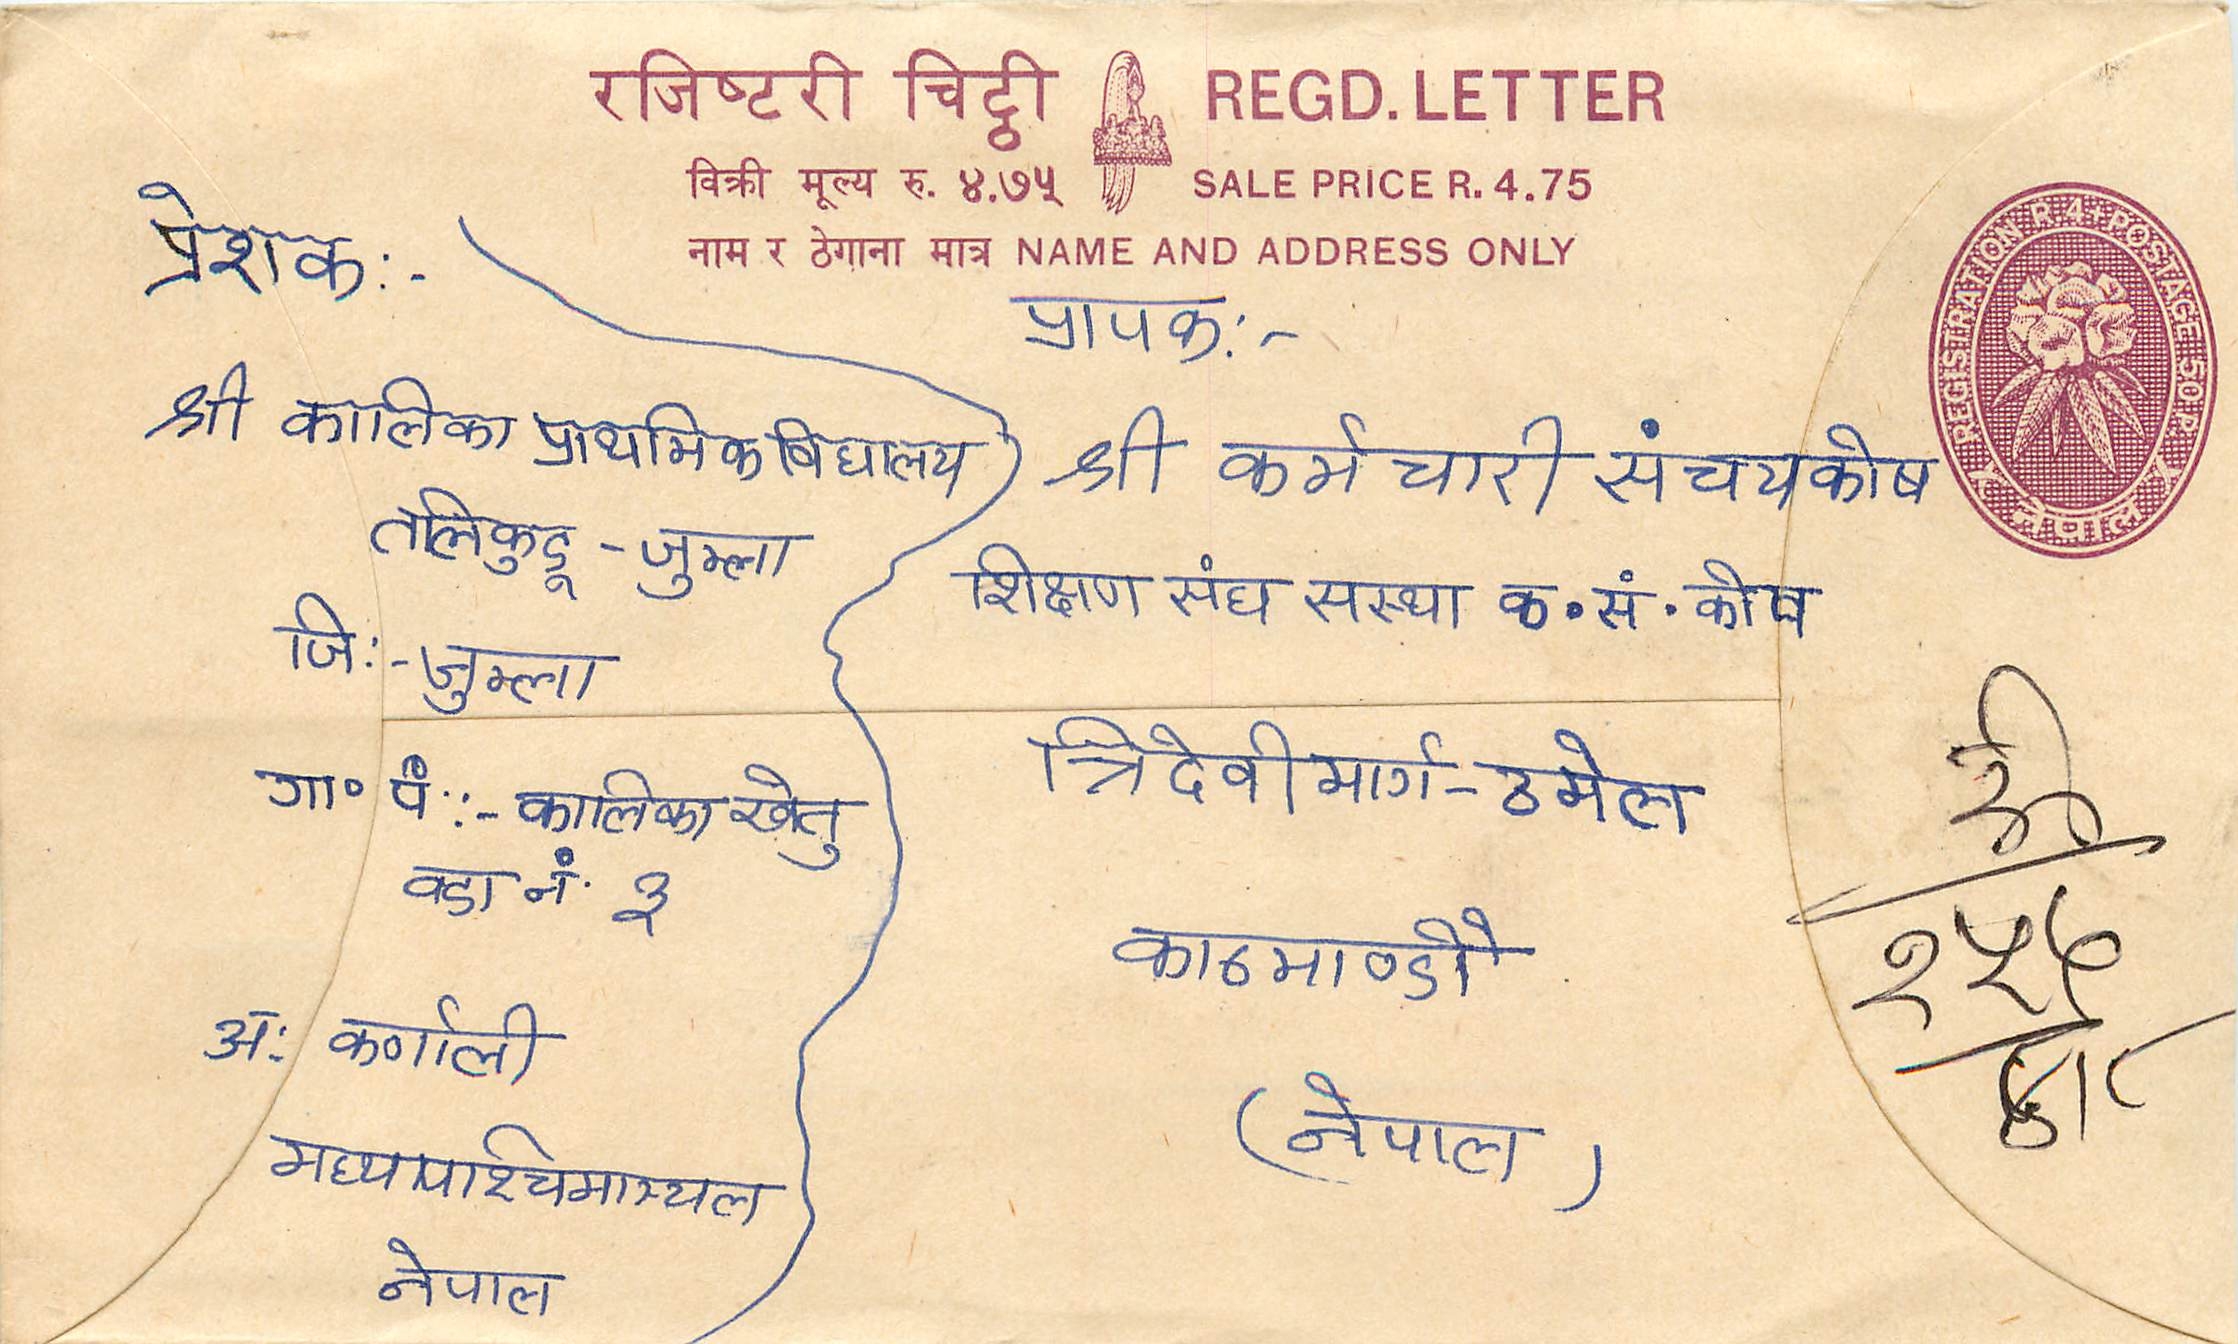 रजिष्टरी चिट्ठी REGD. LETTER
विक्री मूल्य रु. ४.७५ SALE PRICE R. 4.75
नाम र ठेगाना मात्र NAME AND ADDRESS ONLY
REGISTRATION R. 4 + POSTAGE 50 P.
नेपाल
प्रेशक:-
श्री कालिका प्राथमिक विद्यालय
तलिकुडू - जुम्ला
जि:- जुम्ला
गा० पं::- कालिका खेतु
वडा नं. ३
अं: कर्णाली
नेपाल
प्रापक:-
श्री कर्मचारी संचयकोष
शिक्षण संघ सस्था क॰सं॰कोष
त्रिदेवी मार्ग - ठमेल
काठमाण्डौ
(नेपाल)